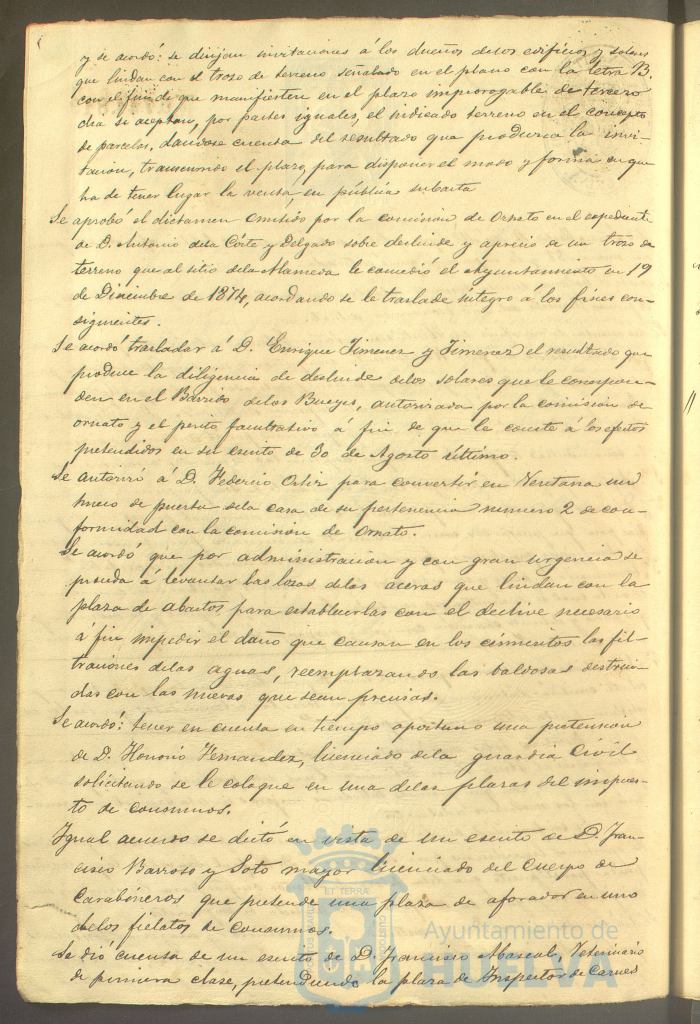 y se acordó: se dirijan invitaciones á los dueños delos edificios y solares
que lindan con el trozo de terreno señalado en el plano con la letra B.
con el fin de que manifiesten en el plazo improrogable de tercero
dia si aceptan, por partes iguales, el indicado terreno en el concepto
de parcelas, dandose cuenta del resultado que produzca la invi-
tacion, trascurrido el plazo, para disponer el modo y forma en que
ha de tener lugar la venta, en pública subasta
Se aprobó el dictamen emitido por la comision de Ornato en el expediente
de D. Antonio dela Córte y Delgado sobre deslinde y aprecio de un trozo de
terreno que al sitio dela Alameda le concedió el Ayuntamiento en 19
de Diciembre de 1874, acordando se le traslade integro á los fines con-
siguientes.
Se acordó trasladar á D. Enrique Jimenez y Jimenez el resultado que
produce la diligencia de deslinde delos solares que le correspon-
den en el Barrido delos Bueyes, autorizada por la comision de
ornato y el perito facultativo á fin de que la conste á los efectos
pretendidos en su escrito de 30 de Agosto último.
Se autorizó á D. Federico Ortiz para convertir en Ventana un
hueco de puerta dela casa de su pertenencia numero 2 de con-
formidad con la comision de Ornato.
Se acordó que por administracion y con gran urgencia se
proceda á levantar las losas delas aceras que lindan con la
plaza de abastos para establecerlas con el declive necesario
á fin impedir el daño que causan en los cimientos las fil-
traciones delas aguas, reemplazando las baldosas destrui-
das con las nuevas que sean precisas.
Se acordó: tener en cuenta en tiempo oportuno una pretension
de D. Honorio Hernandez, licenciado dela guardia Civil
solicitando se le coloque en una delas plazas del impues-
to de consumos.
Igual acuerdo se dictó en vista de un escrito de D. Fran-
cisco Barroso y Soto mayor licenciado del Cuerpo de
Carabineros que pretende una plaza de aforador en uno
delos fielatos de consumos.
Se dió cuenta de un escrito de D. Francisco Mascal, Veterinario
de primera clase, pretendiendo la plaza de Inspector de Carnes
ET TERRA
Ayuntamiento de
HUELVA